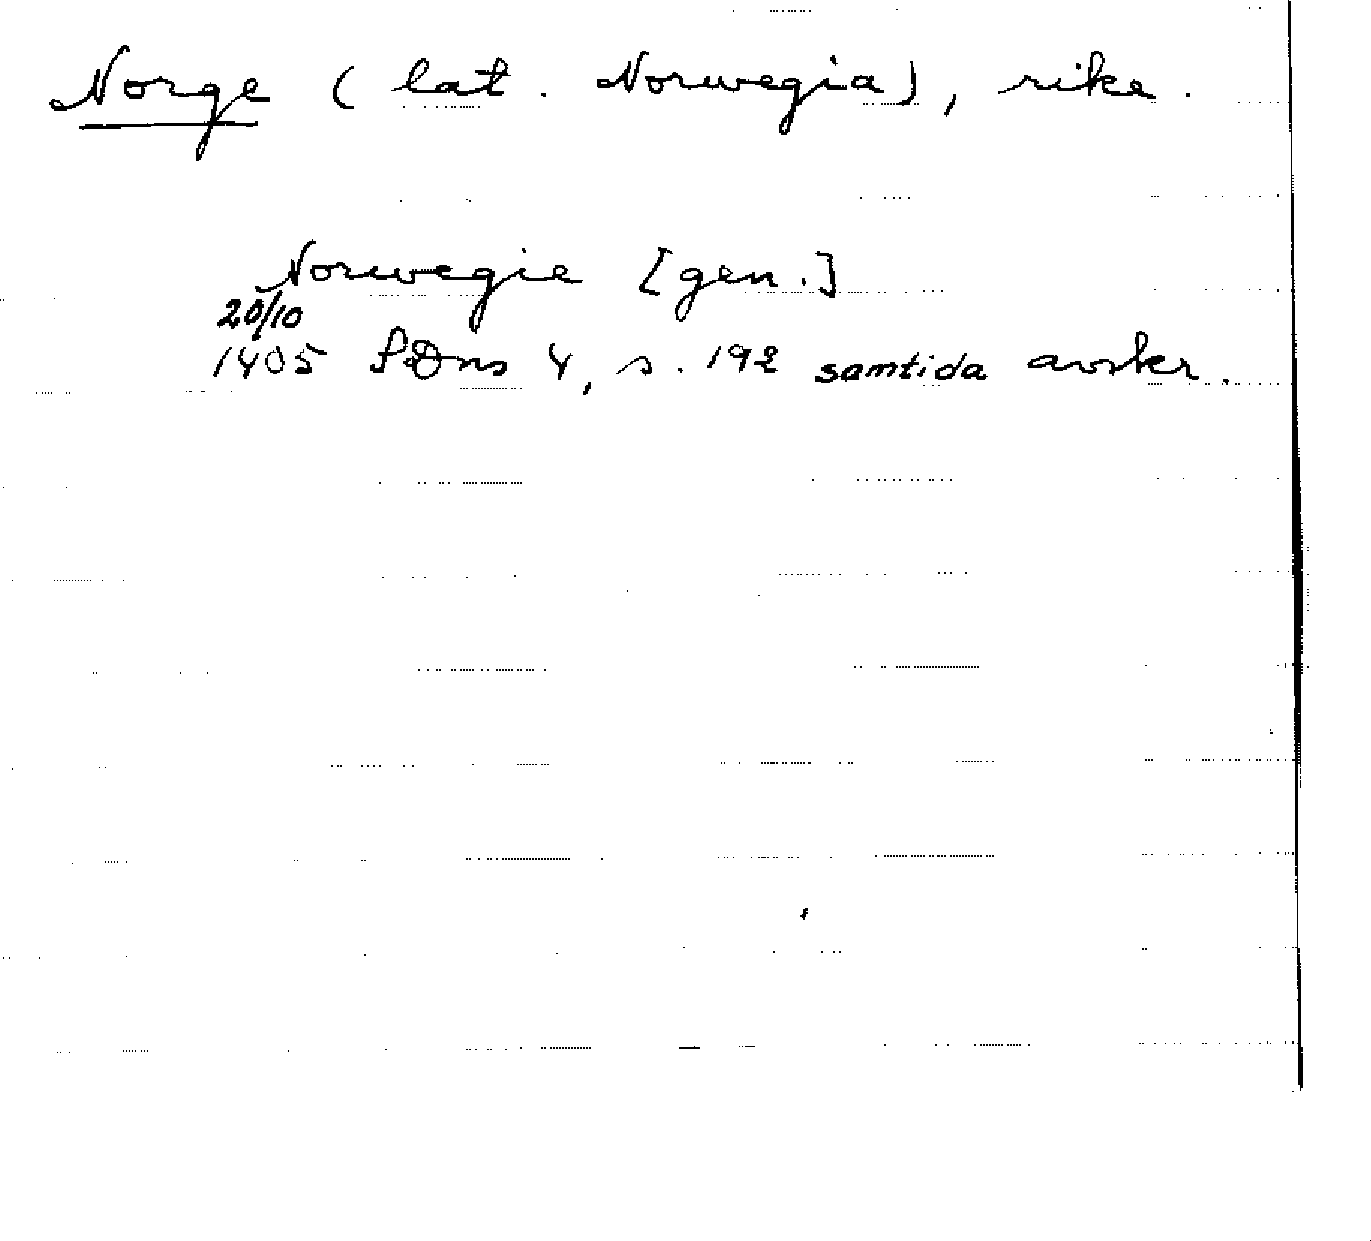 Norge (lat. Norwegia), rike.
Norwegie [gen.]
20/10
1405 SDns 4, s. 192 samtida avskr.